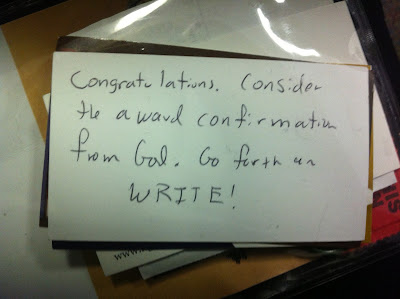 Congratulations. Consider
the award confirmation
from God. Go forth an
WRITE!